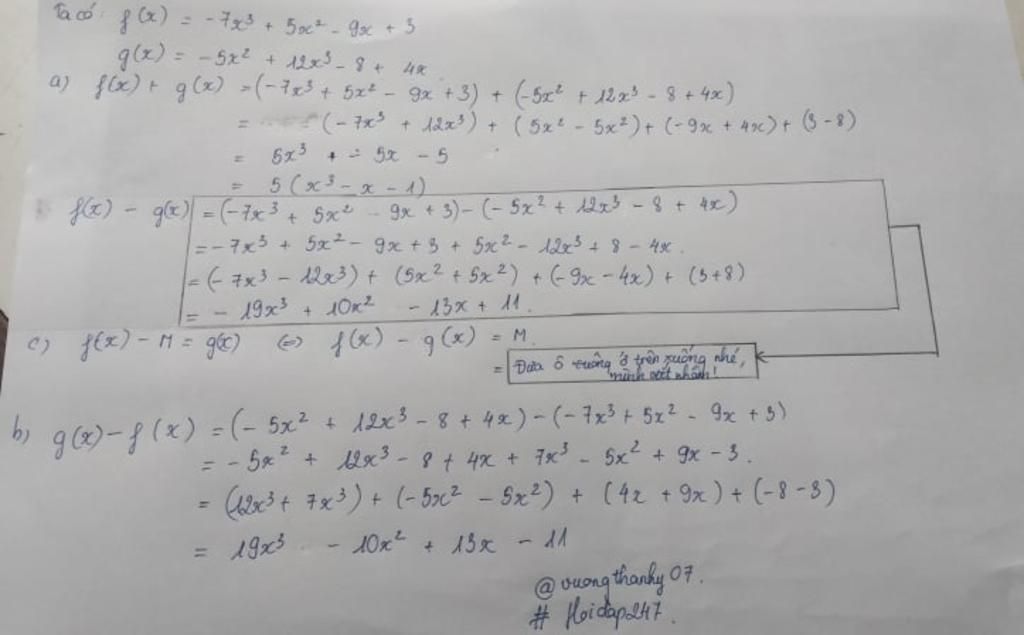 Ta có: f(x) = -7x³ + 5x² - 9x + 3
g(x) = -5x² + 12x³ - 8 + 4x
a) f(x) + g(x) = (-7x³ + 5x² - 9x + 3) + (-5x² + 12x³ - 8 + 4x)
= (-7x³ + 12x³) + (5x² - 5x²) + (-9x + 4x) + (3 - 8)
= 5x³ + - 5x - 5
= 5(x³ - x - 1)
f(x) - g(x) = (-7x³ + 5x² - 9x + 3) - (-5x² + 12x³ - 8 + 4x)
= -7x³ + 5x² - 9x + 3 + 5x² - 12x³ + 8 - 4x.
= (-7x³ - 12x³) + (5x² + 5x²) + (-9x - 4x) + (3+8)
= - 19x³ + 10x² - 13x + 11.
c) f(x) - M = g(x) ⇔ f(x) - g(x) = M.
= Đưa ô vuông ở trên xuống nhé,
mình viết nhầm!
b) g(x) - f(x) = (-5x² + 12x³ - 8 + 4x) - (-7x³ + 5x² - 9x + 3)
= -5x² + 12x³ - 8 + 4x + 7x³ - 5x² + 9x - 3.
= (12x³ + 7x³) + (-5x² - 5x²) + (4x + 9x) + (-8 - 3)
= 19x³ - 10x² + 13x - 11
@vuongthanhy07.
# Hoidap247.